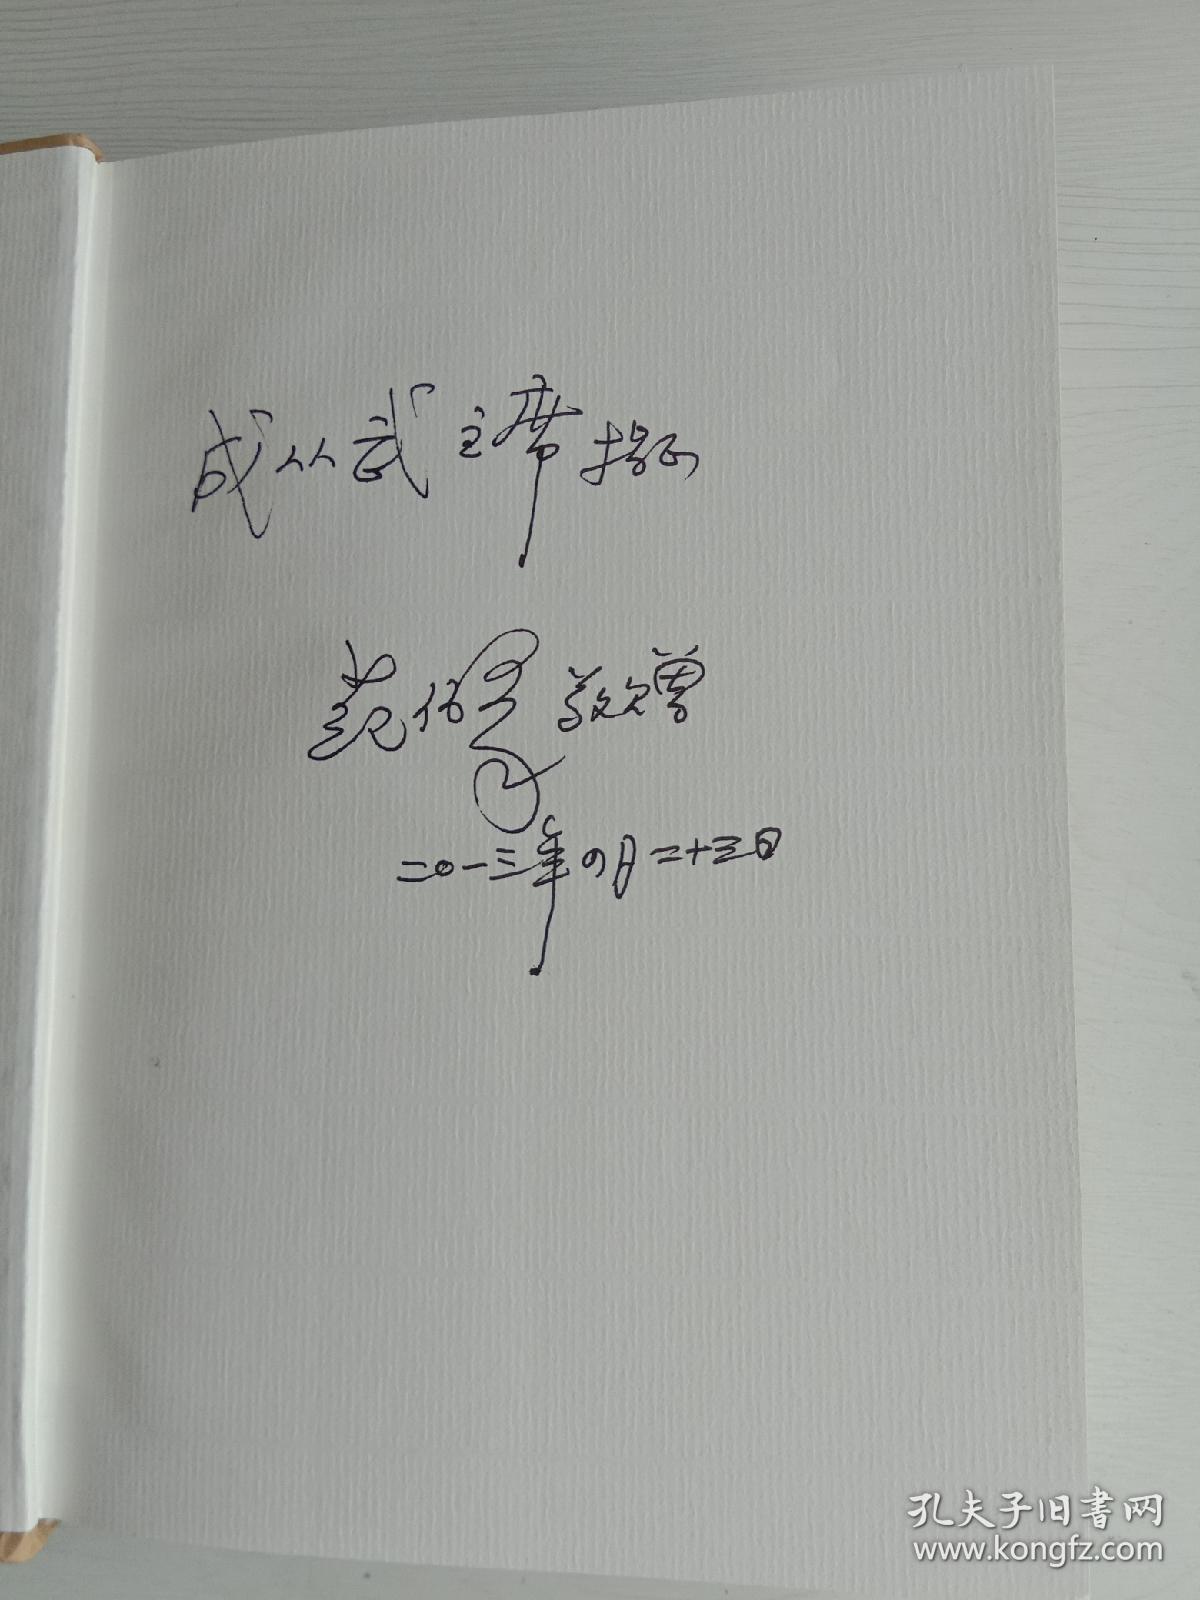 成从武主席指正
范伯 敬赠
二〇一三年四月二十三日
孔夫子旧书网
www.kongfz.com